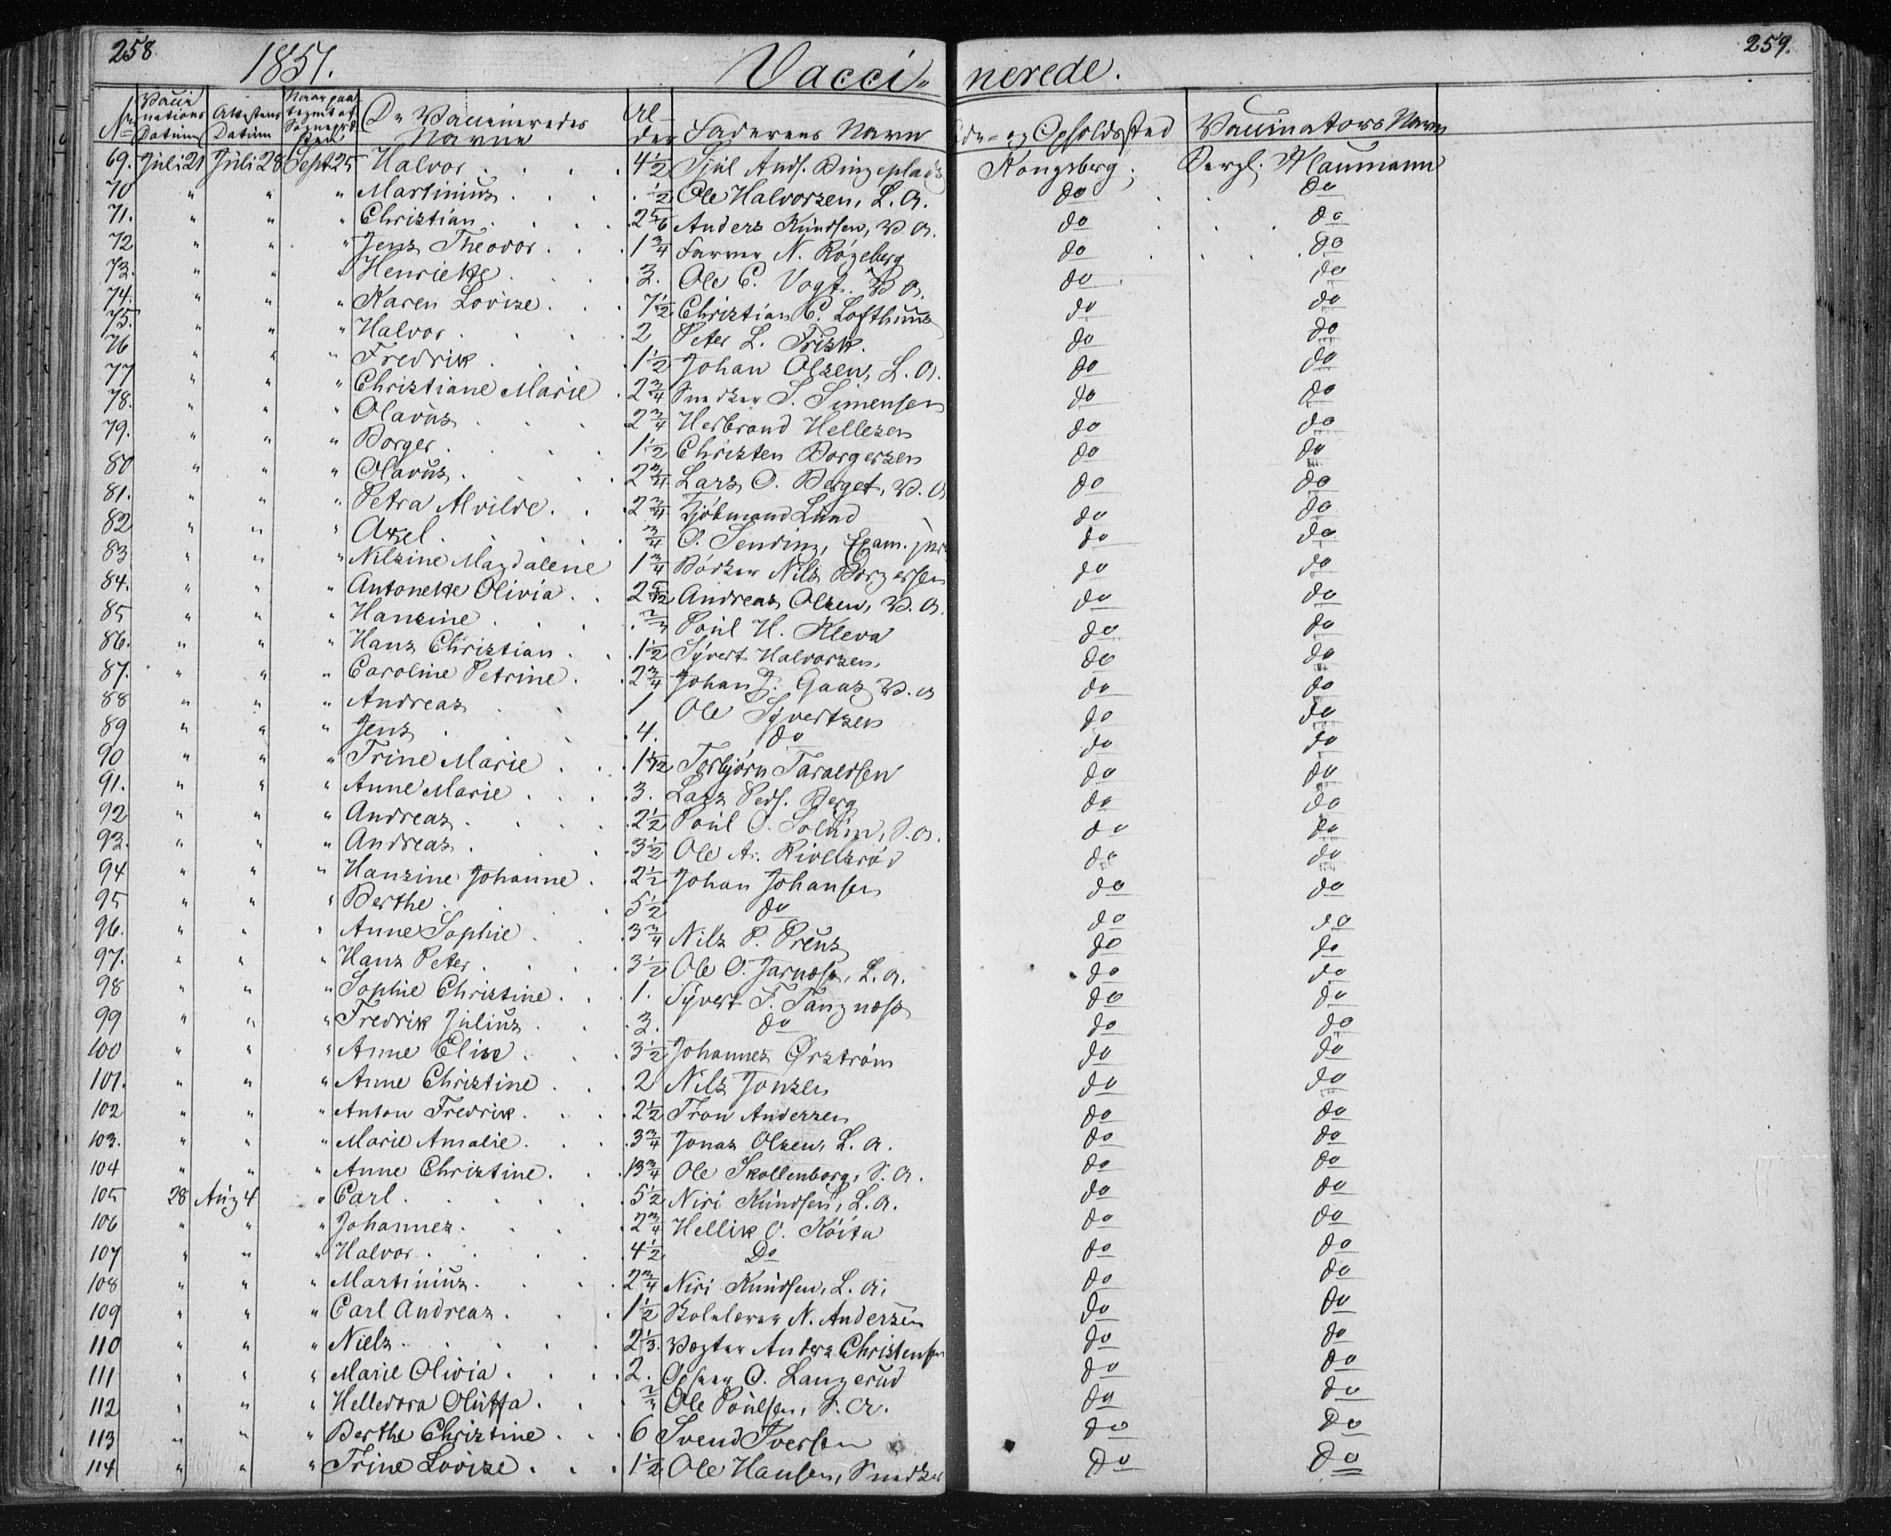 258. 1851. Vacci- nerede. 259.
No Vaccinations Datum Attestens Datum Naar paategnet af Sognepræsten De Vaccineredes Navne Alder Faderens Navn Føde- og Opholdssted Vaccinators Navn
69. Juli 21 Juli 28 Sept. 25 Halvor 4½ Kongsberg Naumann
70 " " " Martinius ½ Ole Halvorsen, L. A. do do
71. " " " Christian 2 5/6 Anders Knudsen, B. A. do do
72 " " " Jens Theodor 1¾ Farver N. Røgeberg do do
73. " " " Henriette 3. Ole C. Vogt. B. A. do do
74. " " " Karen Lovise 7½ Christian C. Lofthuus do do
75. " " " Halvor 2 Peter L. Frisk. do do
76 " " " Fredrik 1½ Johan Olsen, L. A. do do
77 " " " Christiane Marie 2¾ Snedker S. Simensen do do
78. " " " Olavus 2¾ Herbrand Hellesen do do
79. " " " Borger 1½ Christen Borgersen do do
80 " " " Olavus 2¾ Lars O. Berget, B. A do do
81. " " " Petra Alvilde 2¾ Kjöbmand Lund do do
82 " " " Axel ¾ O. Sending, Exam. jur. do do
83 " " " Nilsine Magdalene 1¾ Bödker Nils Borgersen do do
84. " " " Antonette Olivia 2 5/12 Andreas Olsen, B. A. do do
85 " " " Hansine 2/3 Poul H. Kleva do do
86. " " " Hans Christian 1½ Syvert Halvorsen. do do
87. " " " Caroline Petrine 2¾ Johan J. Gaas B. A do do
88 " " " Andreas 1 Ole Syvertsen do do
89 " " " Jens 4. do do do
90 " " " Trine Marie Torbjørn Taraldsen do do
91. " " " Anne Marie 3. Lars Peds. Berg do do
92 " " " Andreas 2½ Poul O. Solum, S. A. do do
93. " " " Andreas 3½ Ole A. Rivelsrød do do
94 " " " Hansine Johanne 2½ Johan Johansen do do
95 " " " Berthe 5½ do do do
96. " " " Anne Sophie 3¾ Nils P. Preus do do
97. " " " Hans Peter 3½ Ole O. Jarnæss, L. A. do do
98 " " " Sophie Christine 1. Syvert T. Tangnæss do do
99 " " " Fredrik Julius 3. do do do
100 " " " Anne Elise 3½ Johannes Ørström do do
101. " " " Anne Christine 2 Nils Jonsen do do
102 " " " Anton Fredrik 2½ Tron Andersen do do
103. " " " Marie Amalie 3¾ Jonas Olsen, L. A. do do
104 " " " Anne Christine 13¾ Ole Skollenborg, S. A. do do
105 28 Aug 4 " Carl 5½ Niri Knudsen, L. A. do do
106 " " " Johannes 2¾ Hellik O. Köita do do
107 " " " Halvor 4½ Do do do
108 " " " Martinius 2¾ Niri Knudsen, L. A. do do
109 " " " Carl Andreas 1½ Skolelærer N. Andersen do do
110 " " " Niels 2⅓. Vogter Anders Christensen do do
111 " " " Marie Olivia 2. O. Langerud do do
112 " " " Helledora Oluffa 2/3 Ole Poulsen, S. A. do do
113 " " " Berthe Christine 6 Svend Iversen do Do
114 " " " Trine Lovise 1½ Ole Hansen, Snedker Do Do